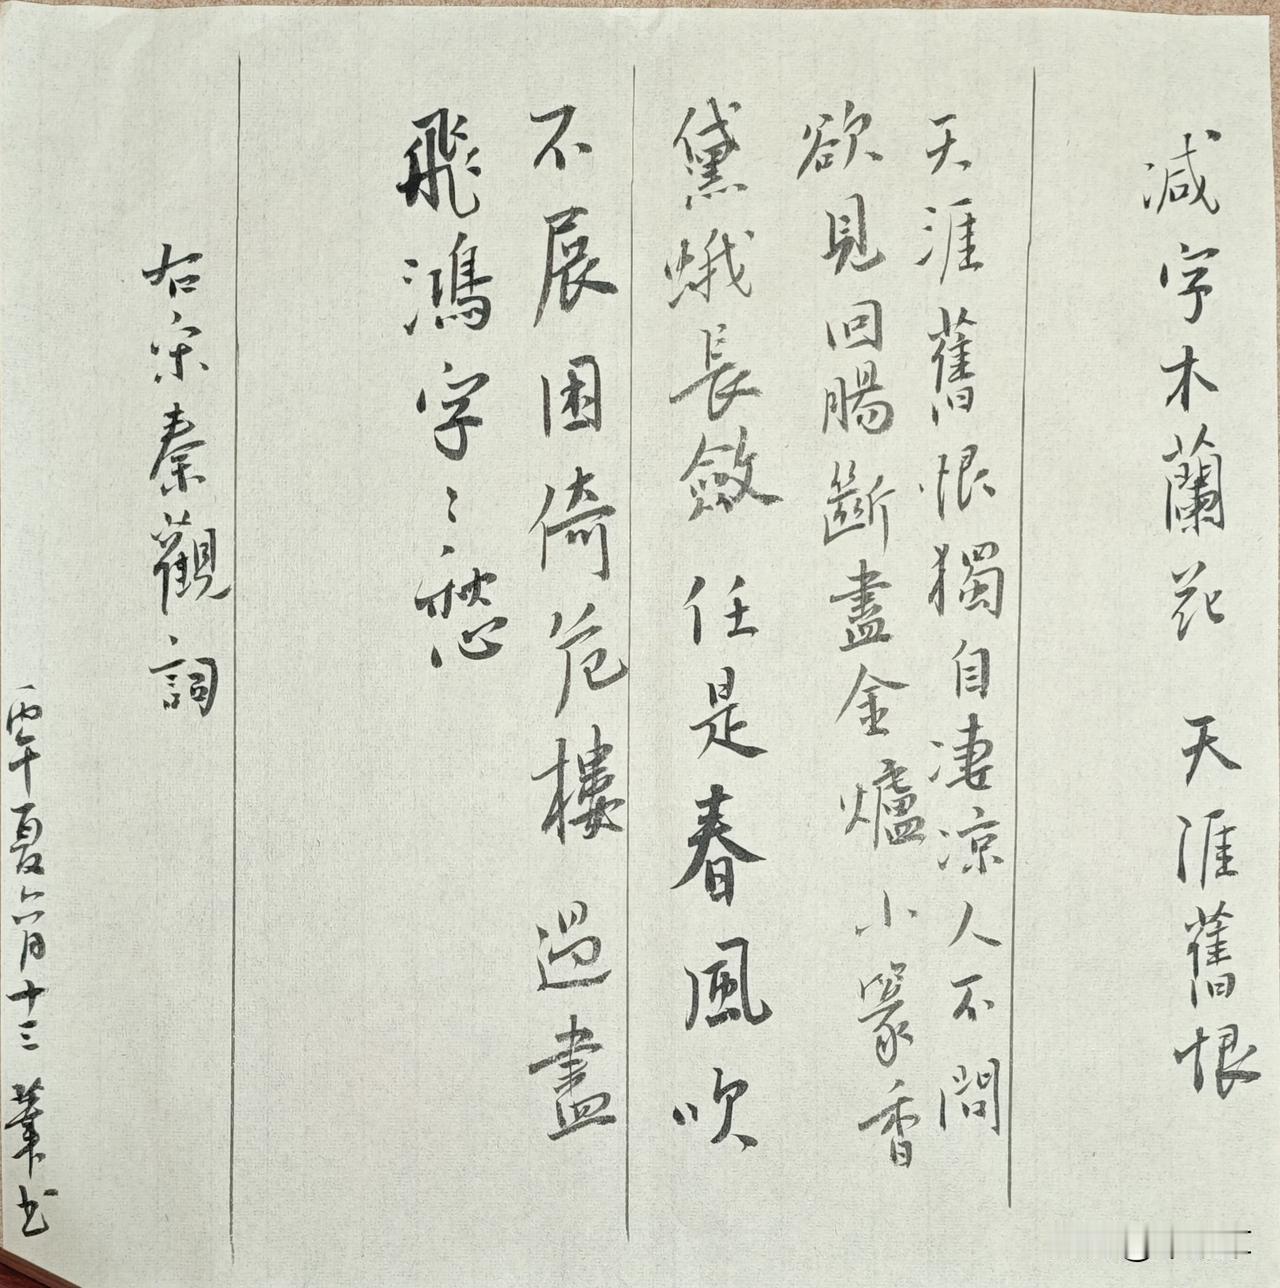 減字木蘭花 天涯舊恨
天涯舊恨獨自凄凉人不問
欲見回腸斷盡金爐小篆香
黛蛾長斂任是春風吹
不展困倚危樓過盡
飛鴻字〻愁
右宋秦觀詞
丙午夏六月十三 葦书